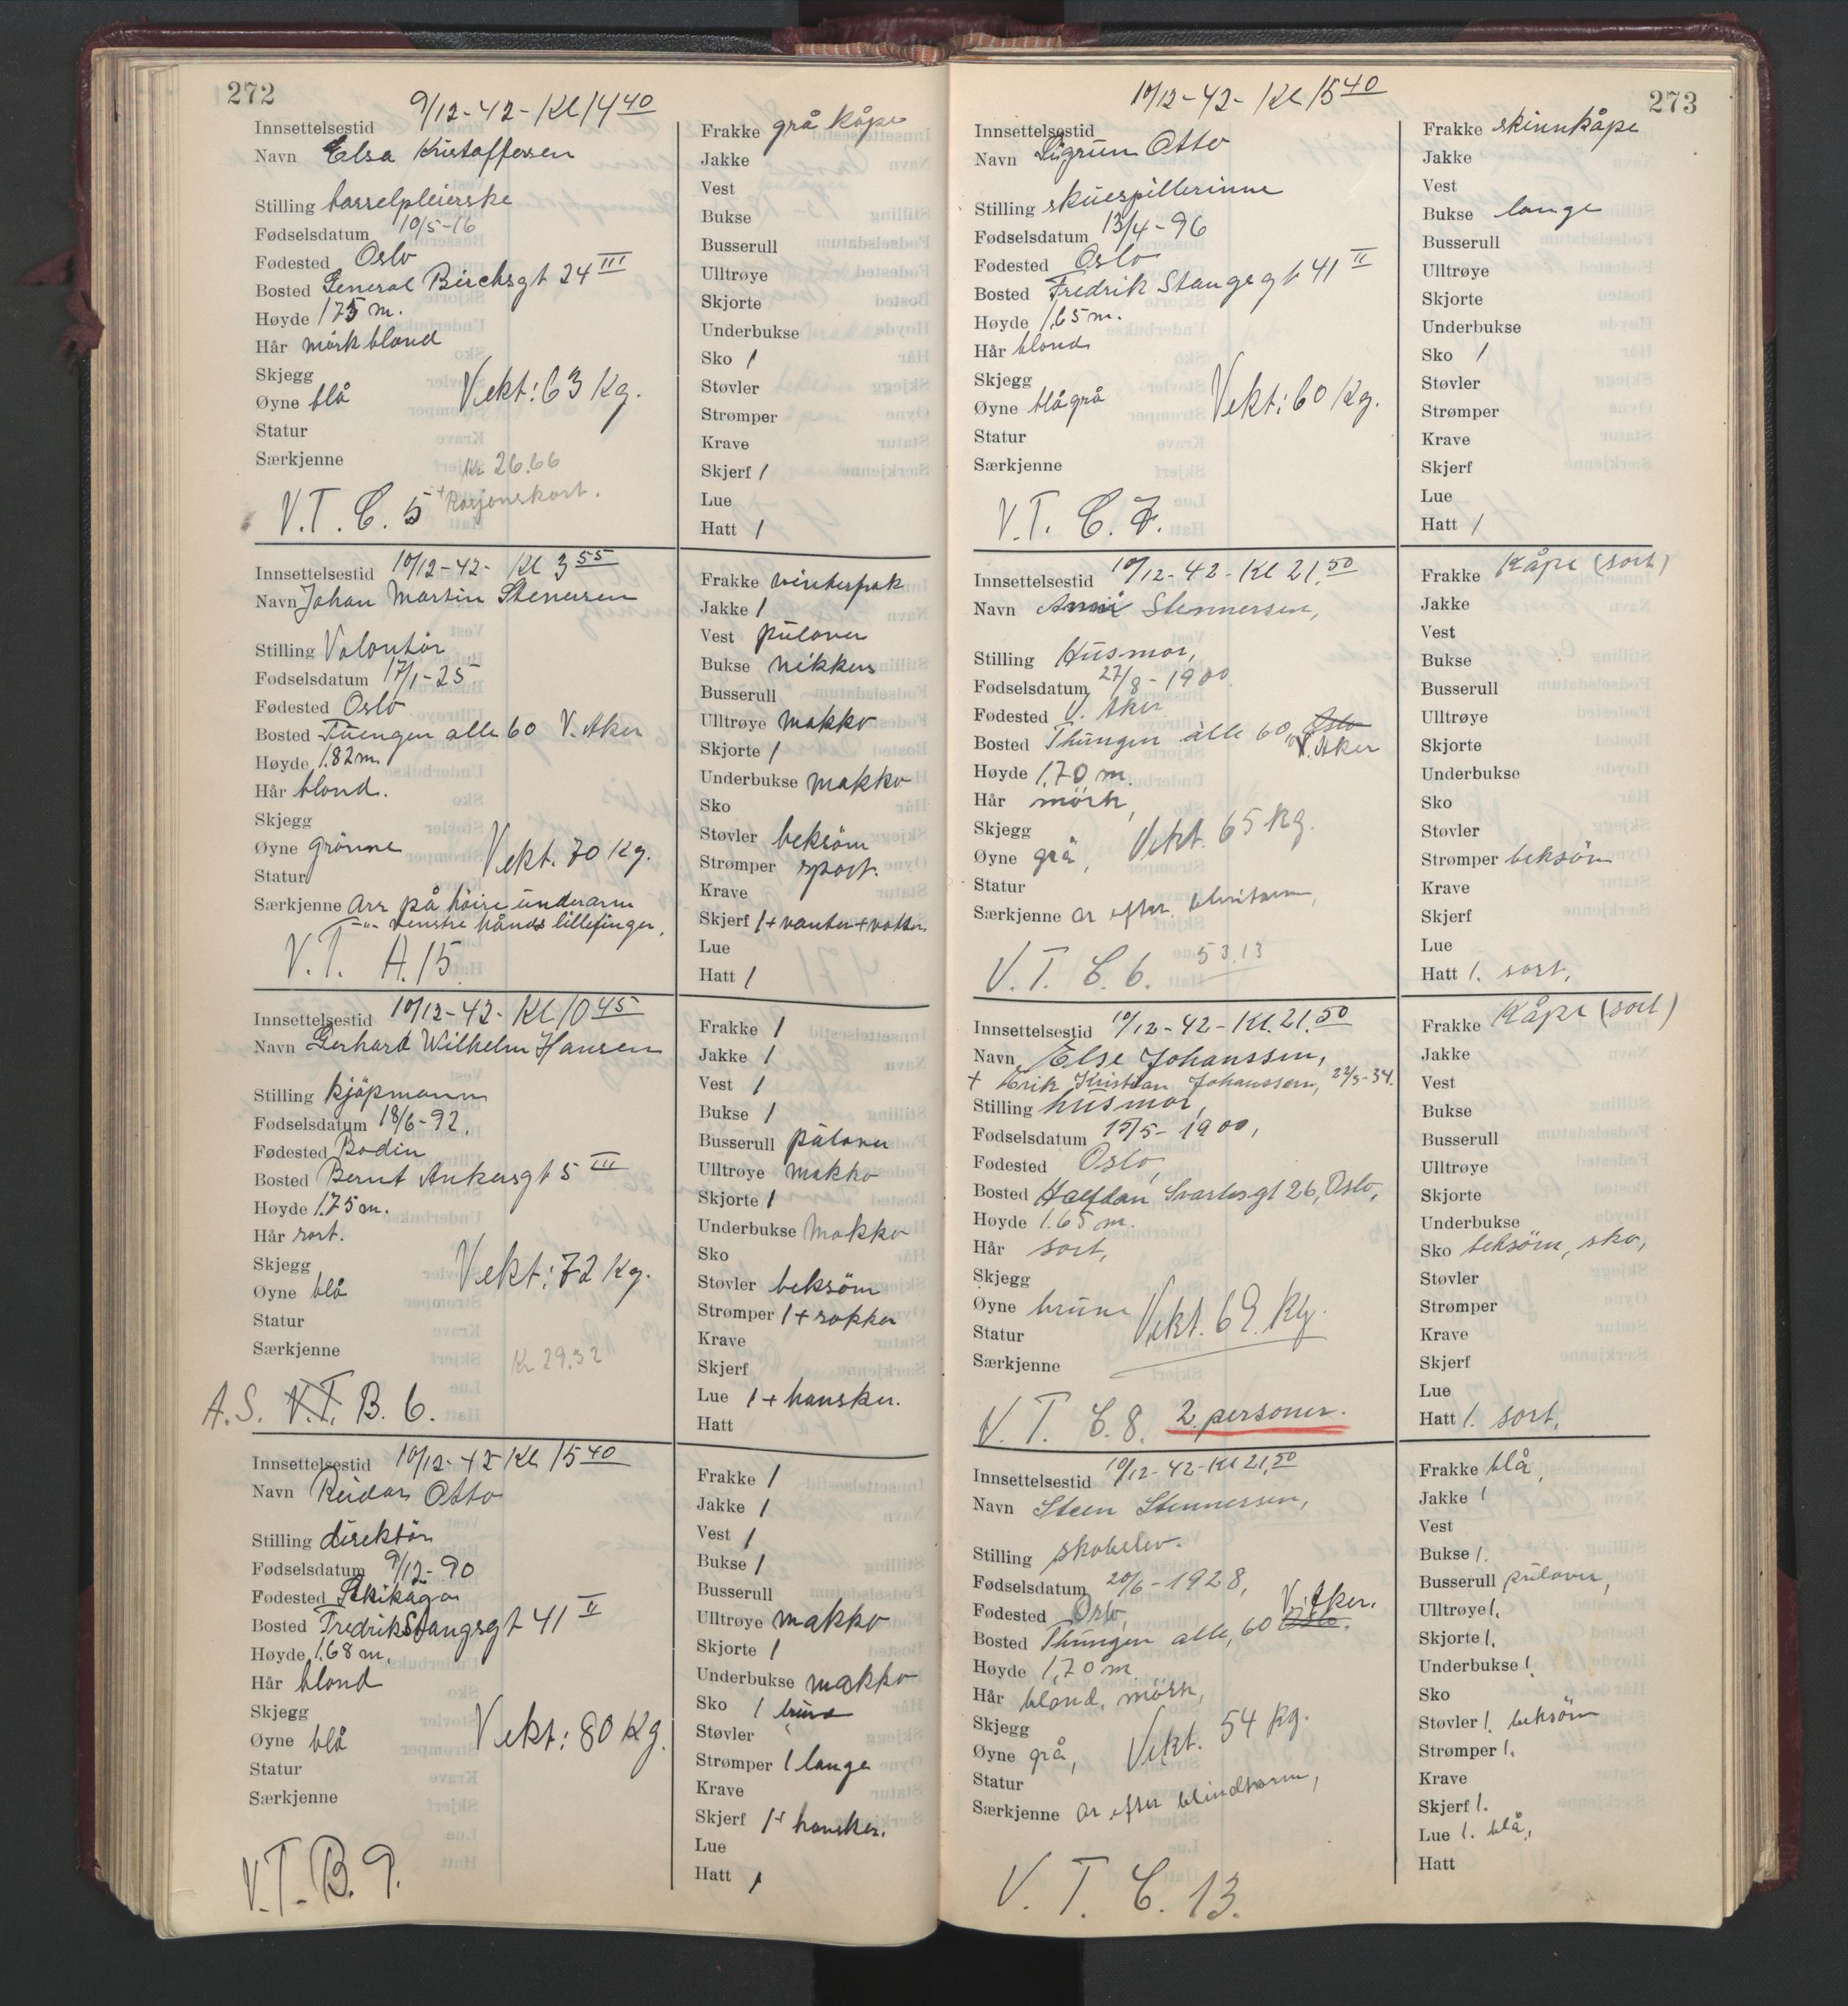 272
9/12-42- Kl 14 40
Innsettelsestid
Navn Elsa Kristoffersen
Stilling barselpleierske
Fødselsdatum 10/5-16
Fødested Oslo
Bosted General Birchsgt 24 III
Høyde 1.75 m.
Hår mörk blond
Skjegg
Øyne blå Vekt: 63 Kg.
Statur
Særkjenne
Kr. 26.66
+ Rasjonskort.
V.T. C. 5
Frakke grå kåpe
Jakke
Vest
Bukse
Busserull
Ulltrøye
Skjorte
Underbukse
Sko 1
Støvler
Strømper
Krave
Skjerf 1
Lue
Hatt 1
Innsettelsestid 10/12-42- Kl 3 55
Navn Johan Martin Stenersen
Stilling Volontör
Fødselsdatum 17/1-25
Fødested Oslo
Bosted Tuengen alle 60 V. Aker
Høyde 1.82 m.
Hår blond.
Skjegg
Øyne grönne Vekt. 70 Kg.
Statur
Særkjenne Arr på höire underarm
-"- venstre hånds lillefinger.
V.T. A.15
Frakke vinterfrak
Jakke 1
Vest pulover
Bukse nikkers
Busserull
Ulltrøye makko
Skjorte 1
Underbukse makko
Sko
Støvler beksöm
Strømper sport.
Krave
Skjerf 1 + vanter + votter.
Lue
Hatt 1
Innsettelsestid 10/12-42- Kl 10 45
Navn Gerhard Wilhelm Hansen
Stilling kjöpmann
Fødselsdatum 18/6-92.
Fødested Bodin
Bosted Bernt Ankersgt 5 III
Høyde 1.75 m.
Hår sort.
Skjegg
Øyne blå Vekt: 72 Kg.
Statur
Særkjenne
Kr 29.32
A.S. V.T. B. 6.
Frakke 1
Jakke 1
Vest 1
Bukse 1
Busserull pulover
Ulltrøye makko
Skjorte 1
Underbukse makko
Sko
Støvler beksöm
Strømper 1 + sokker
Krave
Skjerf
Lue 1 + hansker.
Hatt
Innsettelsestid 10/12-42 Kl 15 40
Navn Reidar Otto
Stilling direktör
Fødselsdatum 9/12-90
Fødested
Bosted Fredrik Stangsgt 41 II
Høyde 1.68 m.
Hår blond
Skjegg
Øyne blå Vekt: 80 Kg.
Statur
Særkjenne
V.T. B. 9.
Frakke 1
Jakke 1
Vest 1
Bukse 1
Busserull
Ulltrøye makko
Skjorte 1
Underbukse makko
Sko 1 brune
Støvler
Strømper 1 lange
Krave
Skjerf 1 + hansker.
Lue
Hatt 1
273
10/12-42- Kl 15 40
Innsettelsestid
Navn Sigrun Otto
Stilling skuespillerinne
Fødselsdatum 13/4-96
Fødested Oslo
Bosted Fredrik Stangsgt 41 II
Høyde 1.65 m.
Hår blond
Skjegg
Øyne blågrå Vekt: 60 Kg.
Statur
Særkjenne
V.T. C. 7.
Frakke skinnkåpe
Jakke
Vest
Bukse lange
Busserull
Ulltrøye
Skjorte
Underbukse
Sko 1
Støvler
Strømper
Krave
Skjerf
Lue
Hatt 1
Innsettelsestid 10/12-42- Kl 21.50
Navn Anni Stennersen,
Stilling Husmor,
Fødselsdatum 27/8-1900
Fødested V. Aker
Bosted Thüngen alle 60, Oslo
V. Aker
Høyde 1,70 m.
Hår mörk,
Skjegg
Øyne grå, Vekt. 65 Kg.
Statur
Særkjenne ar efter
V.T. C. 6. 53.13
Frakke Kåpe (sort)
Jakke
Vest
Bukse
Busserull
Ulltrøye
Skjorte
Underbukse
Sko
Støvler
Strømper beksöm
Krave
Skjerf
Lue
Hatt 1. sort.
Innsettelsestid 10/12-42- Kl. 21.50
Navn Else Johanssen,
+ Erik Kristian Johanssen, 22/3-34.
Stilling husmor,
Fødselsdatum 15/5-1900,
Fødested Oslo,
Bosted Halfdan Svartesgt 26, Oslo,
Høyde 1.65 m.
Hår sort,
Skjegg
Øyne brune Vekt. 69. Kg.
Statur
Særkjenne
V.T. C. 8. 2 personer.
Frakke Kåpe (sort)
Jakke
Vest
Bukse
Busserull
Ulltrøye
Skjorte
Underbukse
Sko beksöm, sko,
Støvler
Strømper
Krave
Skjerf
Lue
Hatt 1. sort.
Innsettelsestid 10/12-42- Kl 21.50
Navn Steen Stennersen,
Stilling skoleelev.
Fødselsdatum 20/6-1928,
Fødested Oslo, V. Aker.
Bosted Thüngen alle, 60 Oslo.
Høyde 1,70 m.
Hår blond, mörk,
Skjegg
Øyne grå, Vekt. 54 Kg.
Statur
Særkjenne ar efter blindtarm,
V.T. C. 13.
Frakke blå,
Jakke 1
Vest
Bukse 1.
Busserull pulover,
Ulltrøye 1.
Skjorte 1.
Underbukse 1.
Sko
Støvler 1. beksöm
Strømper 1.
Krave
Skjerf 1.
Lue 1. blå,
Hatt